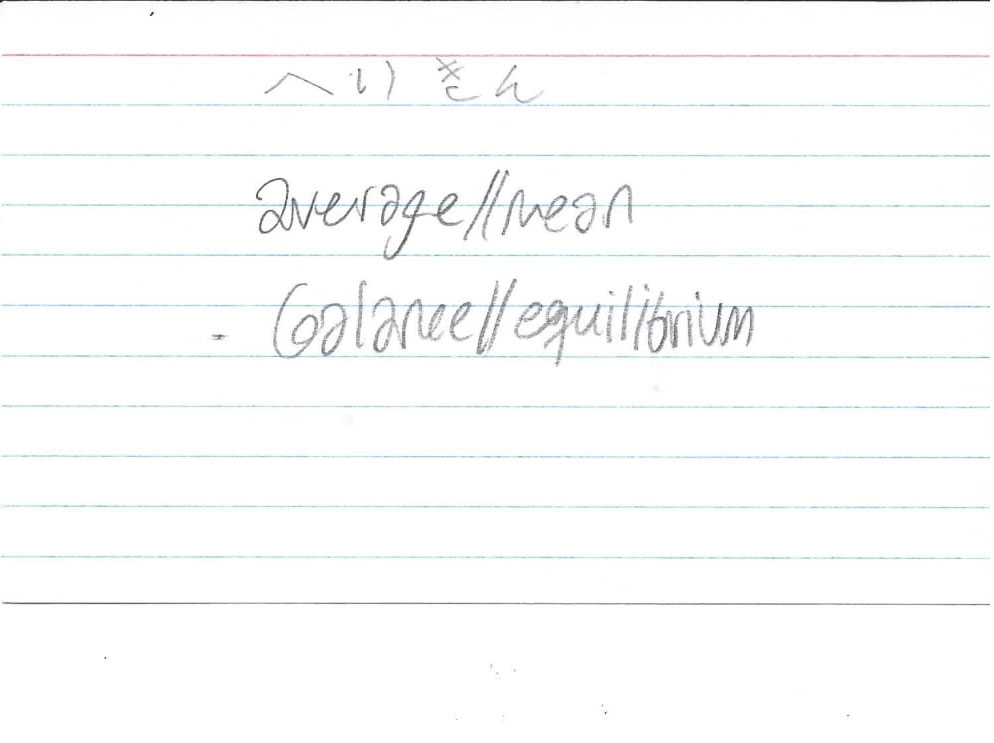 へいきん
average//mean
- balance//equilibrium